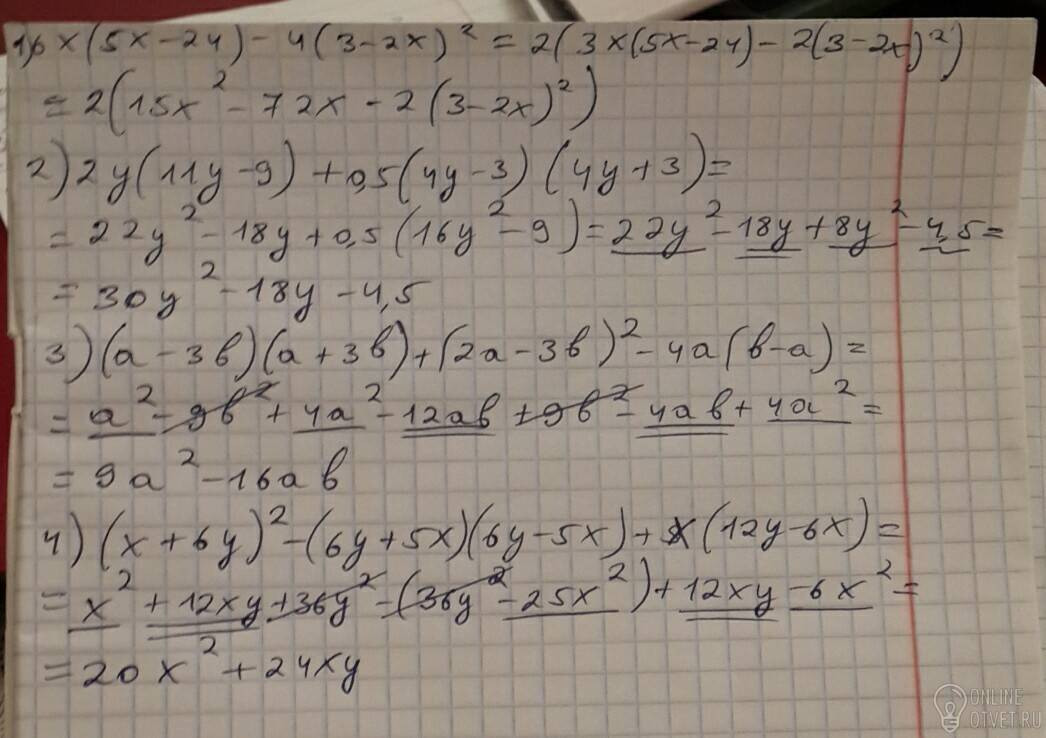 1) 6x(5x-24)-4(3-2x)²=2(3x(5x-24)-2(3-2x)²)
=2(15x²-72x-2(3-2x)²)
2) 2y(11y-9)+0,5(4y-3)(4y+3)=
=22y²-18y+0,5(16y²-9)=22y²-18y+8y²-4,5=
=30y²-18y-4,5
3) (a-3b)(a+3b)+(2a-3b)²-4a(b-a)=
=a²-9b²+4a²-12ab+9b²-4ab+4a²=
=9a²-16ab
4) (x+6y)²-(6y+5x)(6y-5x)+x(12y-6x)=
=x²+12xy+36y²-(36y²-25x²)+12xy-6x²=
=20x²+24xy
ONLINE
OTVET.RU